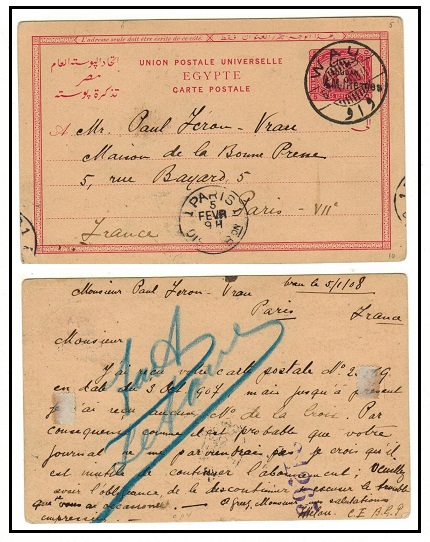 L'adresse seule doit être écrite de ce côté
UNION POSTALE UNIVERSELLE
EGYPTE
CARTE POSTALE
اتحاد البوستة العام
مصر
تذكرة بوستة
WAU
واو
A Mr. Paul Féron-Vrau
Maison de la Bonne Presse
5, rue Bayard, 5
Paris - VIIe
France
PARIS
5
FEVR
9H
Monsieur Paul Feron-Vrau
Wau le 5/1/08
Paris
France
Monsieur
J'ai reçu votre carte postale No.
en date du 3 Oct 907, mais jusqu'à présent
je n'ai reçu aucun No de la Croix. Par
conséquent comme il est probable que votre
journal ne me parviendrait pas je crois qu'il
est inutile de continuer l'abonnement; Veuillez
avoir l'obligeance, de le discontinuer & excuser le trouble
que je vous ai occasionné. Agréez, Monsieur, mes salutations
empressées